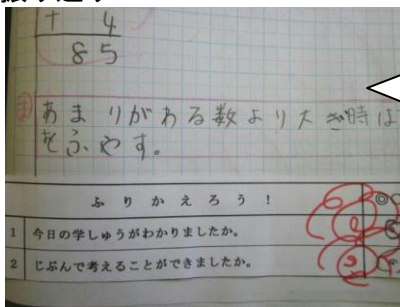 + 4
85
ま あまりがわる数より大き時は
をふやす。
ふりかえろう!
1 今日の学しゅうがわかりましたか。 ◎
2 じぶんで考えることができましたか。